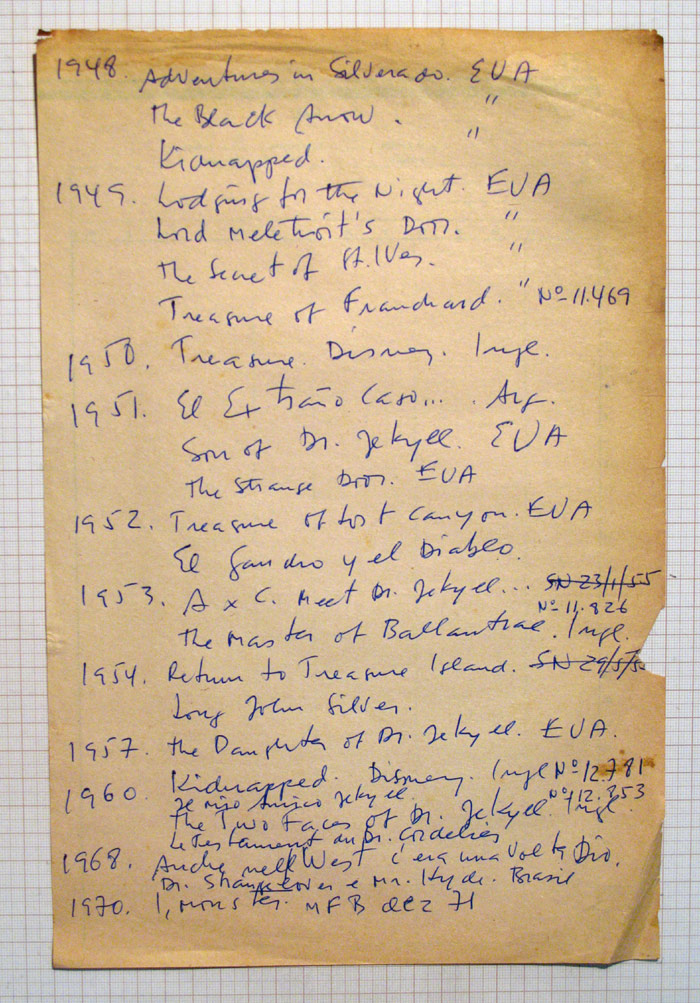 1948. Adventures in Silverado. EUA
The Black Arrow. "
Kidnapped. "
1949. Lodging for the Night. EUA
Lord Meletroit's Door. "
The Secret of St. Ives. "
Treasure of Franchard. " Nº 11.469
1950. Treasure. Disney. Ingl.
1951. El Extraño Caso... . Arg.
Son of Dr. Jekyell. EUA
The Strange Door. EUA
1952. Treasure of Lost Canyon. EUA
El y el Diablo.
1953. A x C. Meet Dr. Jekyell... SN 23/1/55
Nº 11.826
The Master of Ballantrae. Ingl.
1954. Return to Treasure Island. SN 29/5/5
Long John Silver.
1957. The Daughter of Dr. Jekyell. EUA.
1960. Kidnapped. Disney. Ingl Nº 12.781
Jekyell
The Two Faces of Dr. Jekyell. Ingl. Nº 112.353
Le Testament du Dr. Cordelies
1968. Anche nell West c'era una volta Dio.
Dr. Strangelover e Mr. Hyde. Brasil
1970. I, Monster. MFB dez 71